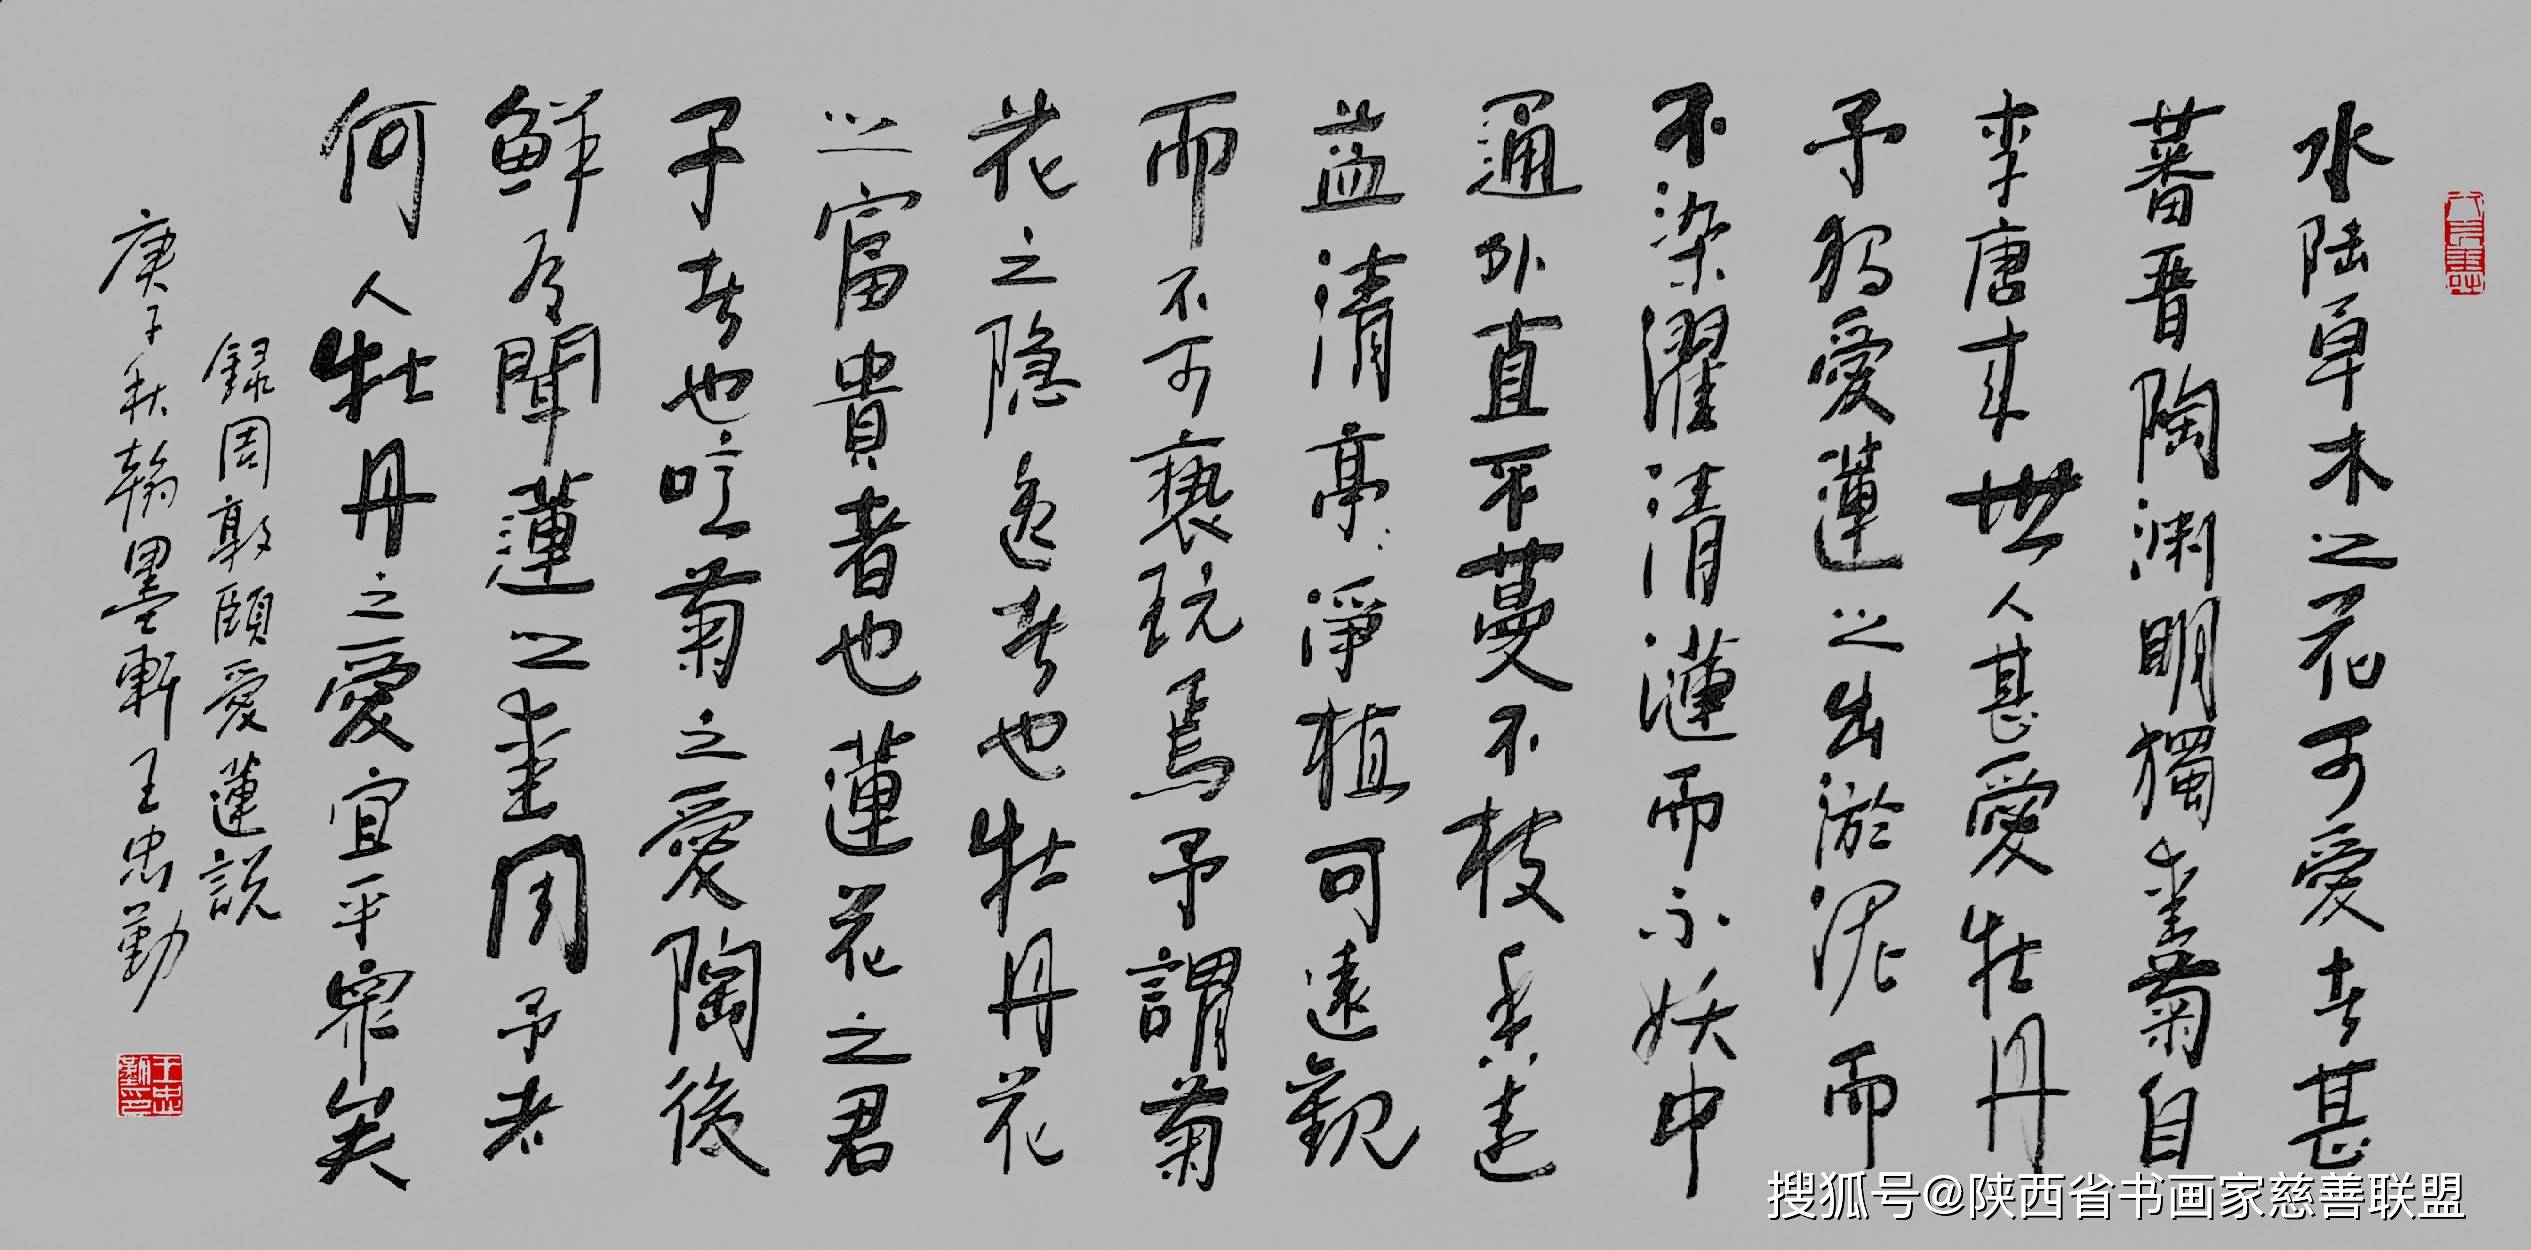 水陸草木之花可愛者甚
蕃晋陶渊明獨愛菊自
李唐来世人甚愛牡丹
予独愛蓮之出淤泥而
不染濯清漣而不妖中
通外直不蔓不枝香遠
益清亭:淨植可遠觀
而不可亵玩焉予謂菊
花之隐逸者也牡丹花
之富貴者也蓮花之君
子者也噫菊之愛陶後
鮮有聞蓮之愛同予者
何人牡丹之愛宜乎眾矣
録周敦頤愛蓮説
庚子秋翰墨軒王忠勤
王忠勤印
搜狐号@陕西省书画家慈善联盟